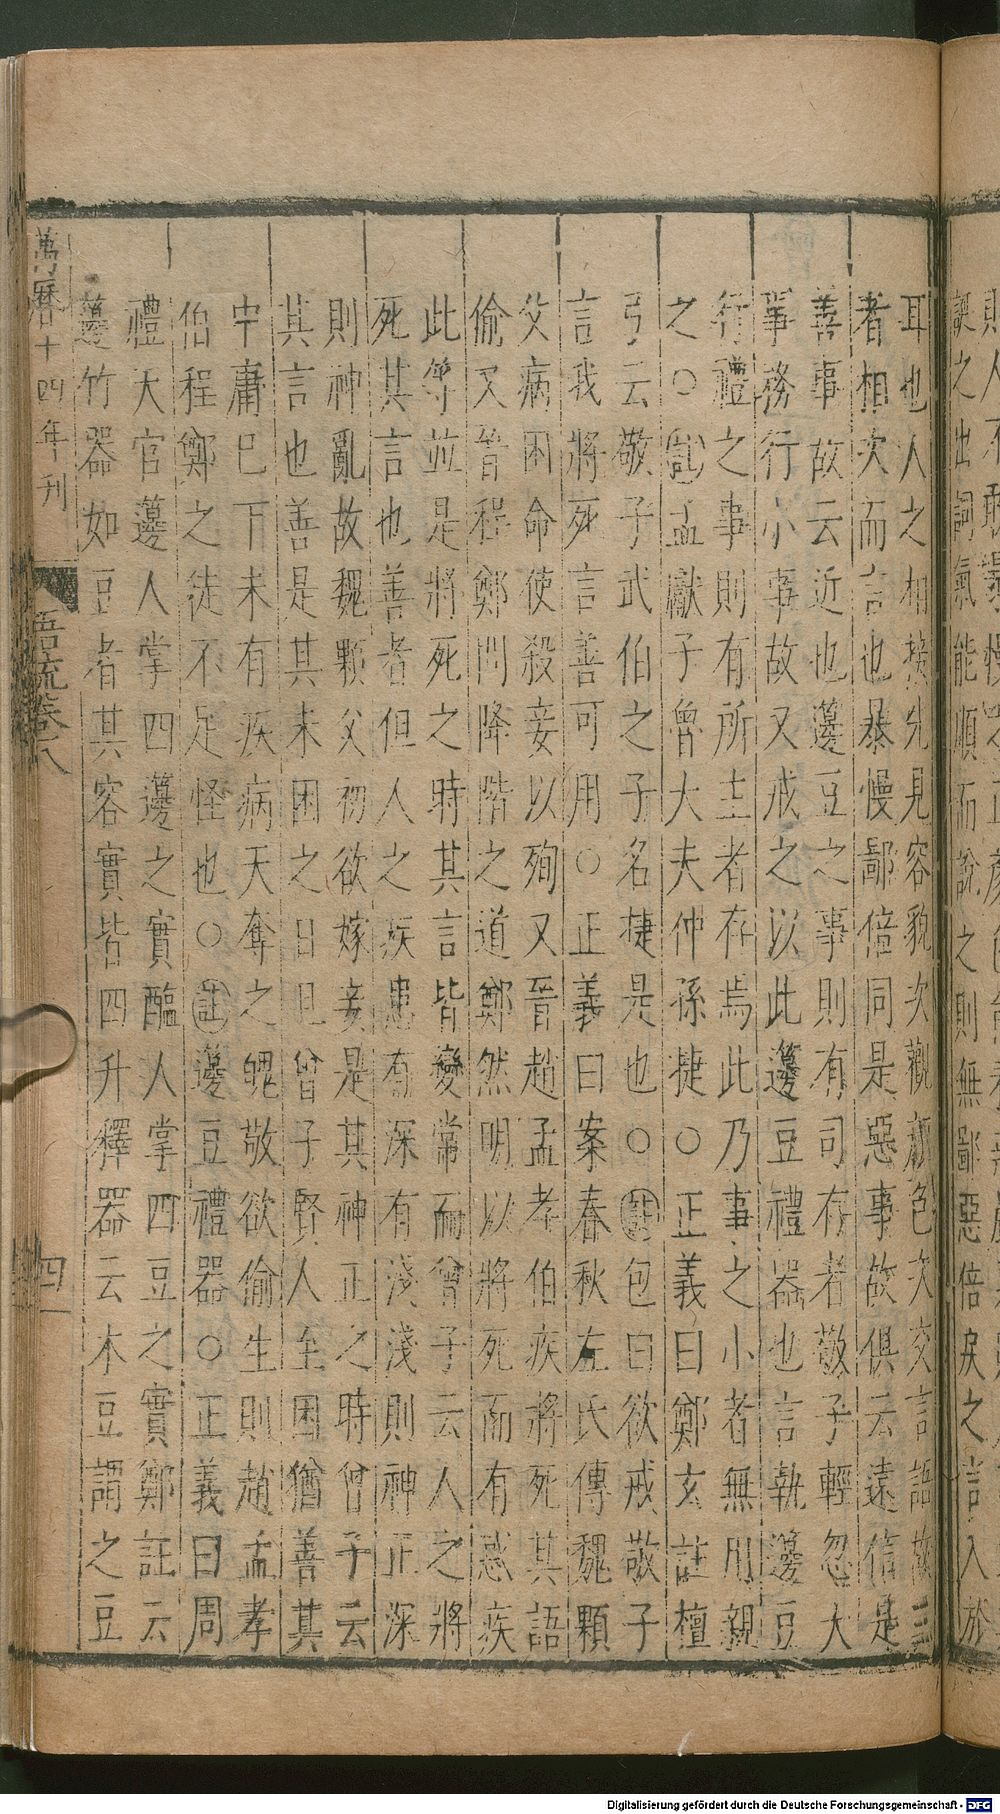 誤之出詞氣能順而說之則無鄙惡倍戾之言入於
耳也人之相接先見容貌次觀顏色次交言語故三
者相次而言也暴慢鄙倍同是惡事故俱云遠信是
善事故云近也籩豆之事則有司存者敬子輕忽大
事務行小事故又戒之以此籩豆禮器也言執籩豆
行禮之事則有所主者存焉此乃事之小者無用親
之○註孟獻子魯大夫仲孫捷○正義曰鄭玄註檀
弓云敬子武伯之子名捷是也○註包曰欲戒敬子
言我將死言善可用○正義曰案春秋左氏傳魏顆
父病困命使殺妾以殉又晉趙孟孝伯疾將死其語
偷又晉程鄭問降階之道鄭然明以將死而有惑疾
此等並是將死之時其言皆變常而曾子云人之將
死其言也善者但人之疾患有深有淺淺則神正深
則神亂故魏顆父初欲嫁妾是其神正之時曾子云
其言也善是其未困之日且曾子賢人至困猶善其
中庸已下未有疾病天奪之魄敬欲偷生則趙孟孝
伯程鄭之徒不足怪也○註籩豆禮器○正義曰周
禮大官籩人掌四籩之實醢人掌四豆之實鄭註云
籩竹器如豆者其容實皆四升釋器云木豆謂之豆
萬曆十四年刊 語疏卷八 四
Digitalisierung gefördert durch die Deutsche Forschungsgemeinschaft - DFG